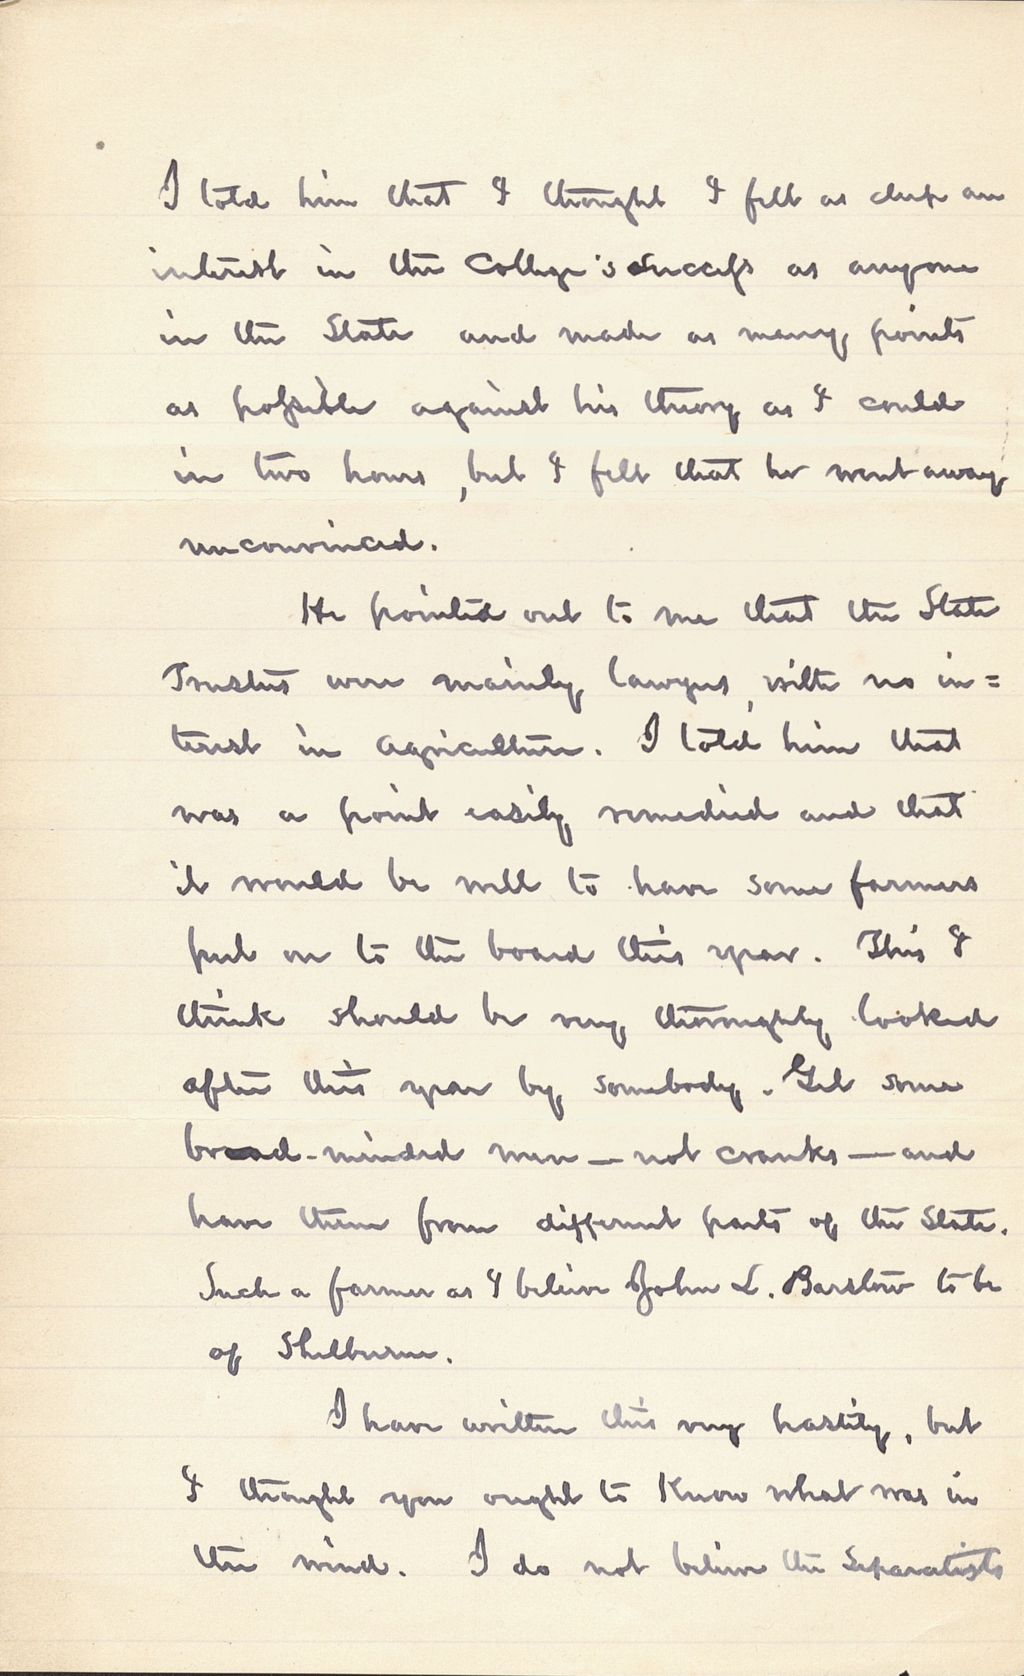 I told him that I thought I felt as deep an
interest in the College's success as anyone
in the State and made as many points
as possible against his theory as I could
in two hours, but I felt that he went away
unconvinced.
He pointed out to me that the State
Trustees were mainly lawyers, with no in=
terest in agriculture. I told him that
was a point easily remedied and that
it would be well to have some farmers
put on to the board this year. This I
think should be very thoroughly looked
after this year by somebody. Get some
broad-minded men — not cranks — and
have them from different parts of the State.
Such a farmer as I believe John L. Barstow to be
of Shelburne.
I have written this very hastily, but
I thought you ought to know what was in
the wind. I do not believe the Separatists